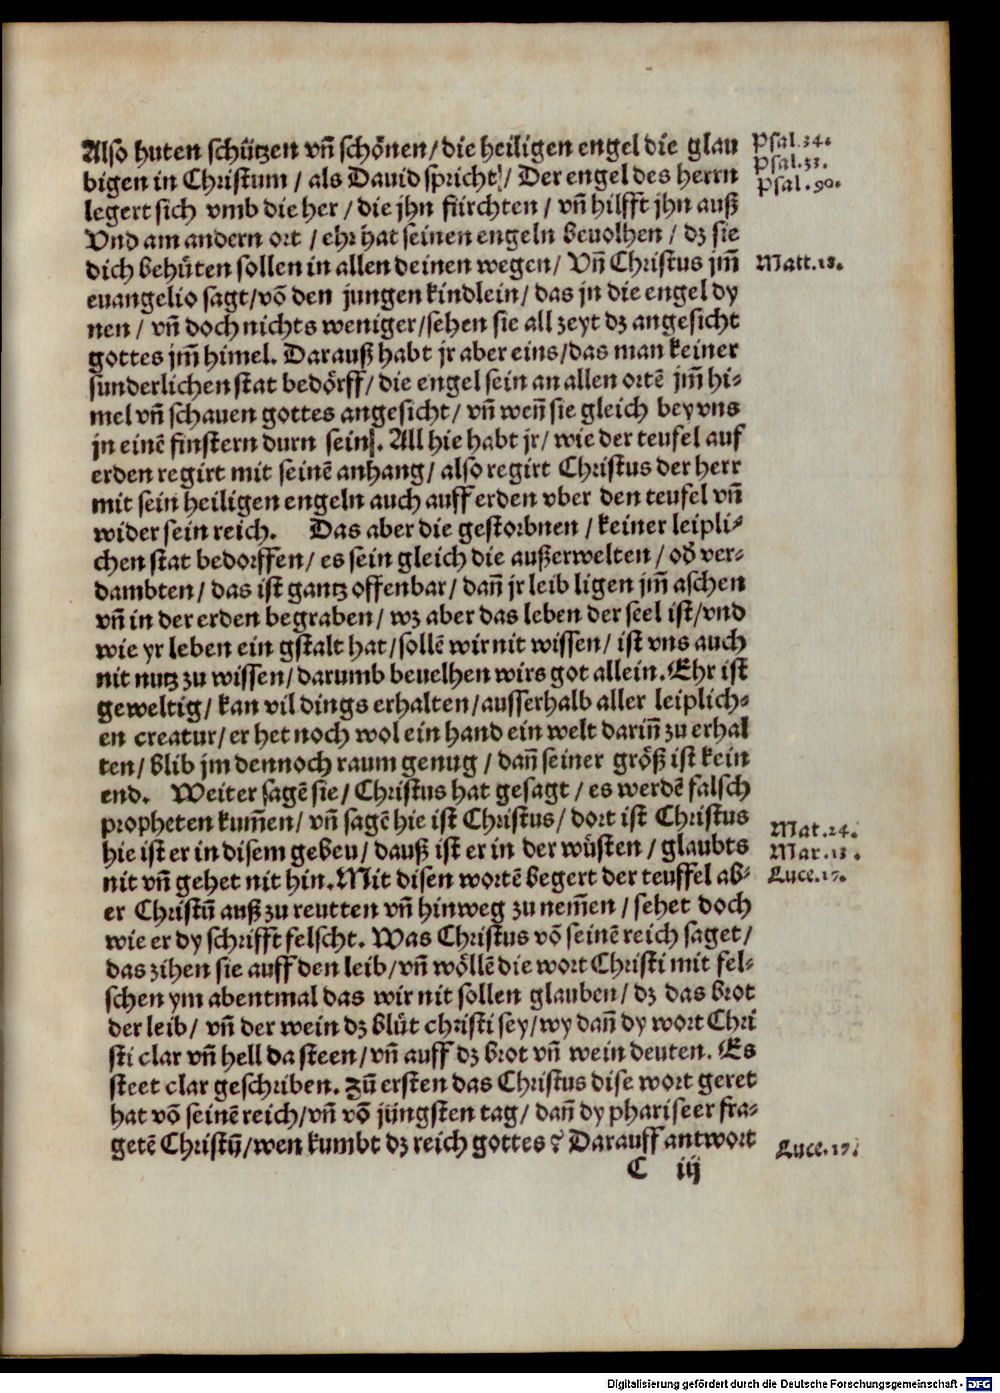 Also huten schützen vñ schönen/die heiligen engel die glau
bigen in Christum / als Dauid spricht / Der engel des herrn
legert sich vmb die her / die jhn fürchten / vñ hilfft jhn auß
Vnd am andern ort / ehr hat seinen engeln beuolhen / dz sie
dich behüten sollen in allen deinen wegen/ Vñ Christus jm̃
euangelio sagt/võ den jungen kindlein/ das jn die engel dy
nen / vñ doch nichts weniger/sehen sie all zeyt dz angesicht
gottes jm̃ himel. Darauß habt jr aber eins/das man keiner
sunderlichen stat bedörff/ die engel sein an allen ortẽ jm̃ hi⸗
mel vñ schauen gottes angesicht/ vñ weñ sie gleich bey vns
jn einẽ finstern durn sein. All hie habt jr/ wie der teufel auf
erden regirt mit seinẽ anhang/ also regirt Christus der herr
mit sein heiligen engeln auch auff erden vber den teufel vñ
wider sein reich. Das aber die gestorbnen / keiner leipli⸗
chen stat bedorffen/ es sein gleich die außerwelten / oð ver⸗
dambten / das ist gantz offenbar/ dañ jr leib ligen jm̃ aschen
vñ in der erden begraben/ wz aber das leben der seel ist/vnd
wie yr leben ein gstalt hat/sollẽ wir nit wissen/ ist vns auch
nit nutz zu wissen/darumb beuelhen wirs got allein. Ehr ist
geweltig/ kan vil dings erhalten/ausserhalb aller leiplich⸗
en creatur/er het noch wol ein hand ein welt dariñ zu erhal
ten/ blib jm dennoch raum genug / dañ seiner größ ist kein
end. Weiter sagẽ sie/ Christus hat gesagt / es werdẽ falsch
propheten kum̃en/ vñ sagẽ hie ist Christus/ dort ist Christus
hie ist er in disem gebeu/ dauß ist er in der wüsten / glaubts
nit vñ gehet nit hin. Mit disen wortẽ begert der teuffel ab⸗
er Christũ auß zu reutten vñ hinweg zu nem̃en / sehet doch
wie er dy schrifft felscht. Was Christus võ seinẽ reich saget/
das zihen sie auff den leib/vñ wöllẽ die wort Christi mit fel⸗
schen ym abentmal das wir nit sollen glauben/ dz das brot
der leib/ vñ der wein dz blůt christi sey/wy dañ dy wort Chri
sti clar vñ hell da steen/vñ auff dz brot vñ wein deuten. Es
steet clar geschriben. Zũ ersten das Christus dise wort geret
hat võ seinẽ reich/vñ võ jüngsten tag/ dañ dy phariseer fra⸗
getẽ Christũ/wen kumbt dz reich gottes? Darauff antwort
C iij
Psal.34.
Psal.33.
Psal.90.
Matt.18.
Mat.24.
Mar.13.
Luce.17.
Luce.17.
Digitalisierung gefördert durch die Deutsche Forschungsgemeinschaft - DFG